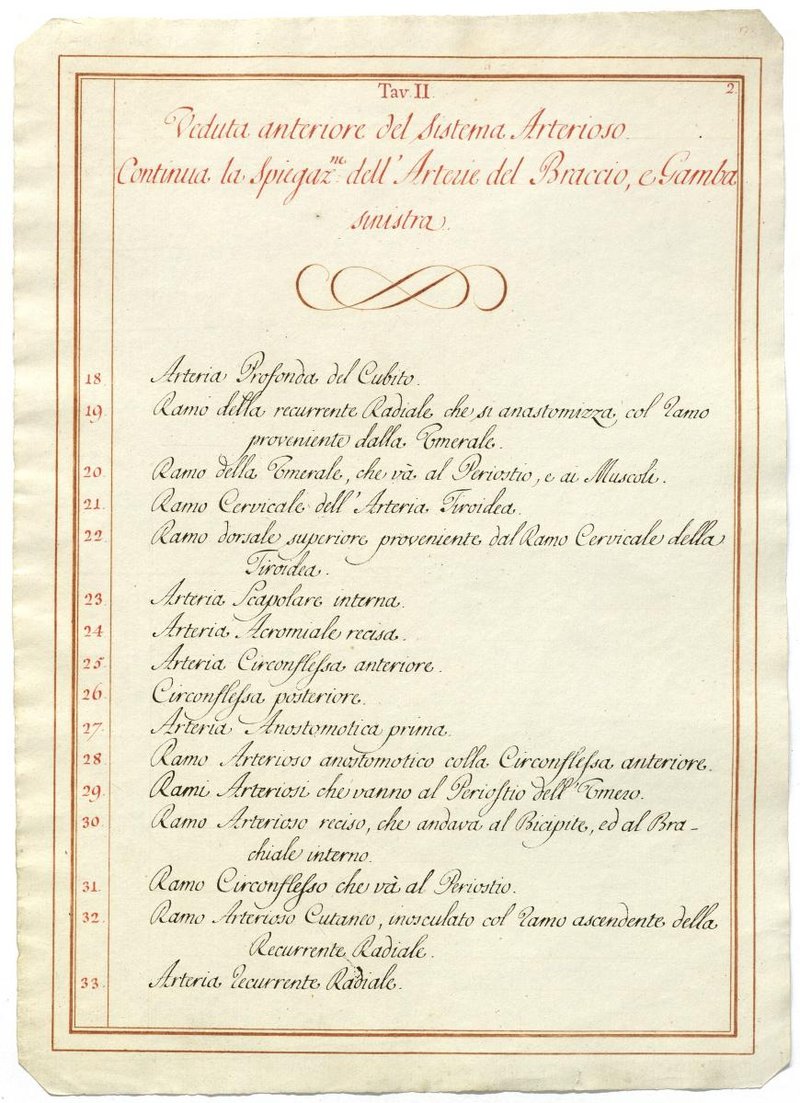 Tav. II. 2.
Veduta anteriore del Sistema Arterioso.
Continua la Spiegaz.ne dell'Arterie del Braccio, e Gamba
sinistra.
18 Arteria Profonda del Cubito.
19. Ramo della recurrente Radiale che si anastomizza col Ramo
proveniente dalla Umerale.
20. Ramo della Umerale, che và al Periostio, e ai Muscoli.
21. Ramo Cervicale dell'Arteria Tiroidea.
22. Ramo dorsale superiore proveniente dal Ramo Cervicale della
Tiroidea.
23. Arteria Scapolare interna.
24 Arteria Acromiale recisa.
25. Arteria Circonflessa anteriore.
26. Circonflessa posteriore.
27. Arteria Anostomotica prima.
28 Ramo Arterioso anastomotico colla Circonflessa anteriore.
29. Rami Arteriosi che vanno al Periostio dell'Umero.
30. Ramo Arterioso reciso, che andava al Bicipite, ed al Bra-
chiale interno.
31. Ramo Circonflesso che và al Periostio.
32. Ramo Arterioso Cutaneo, inosculato col Ramo ascendente della
Recurrente Radiale.
33. Arteria recurrente Radiale.